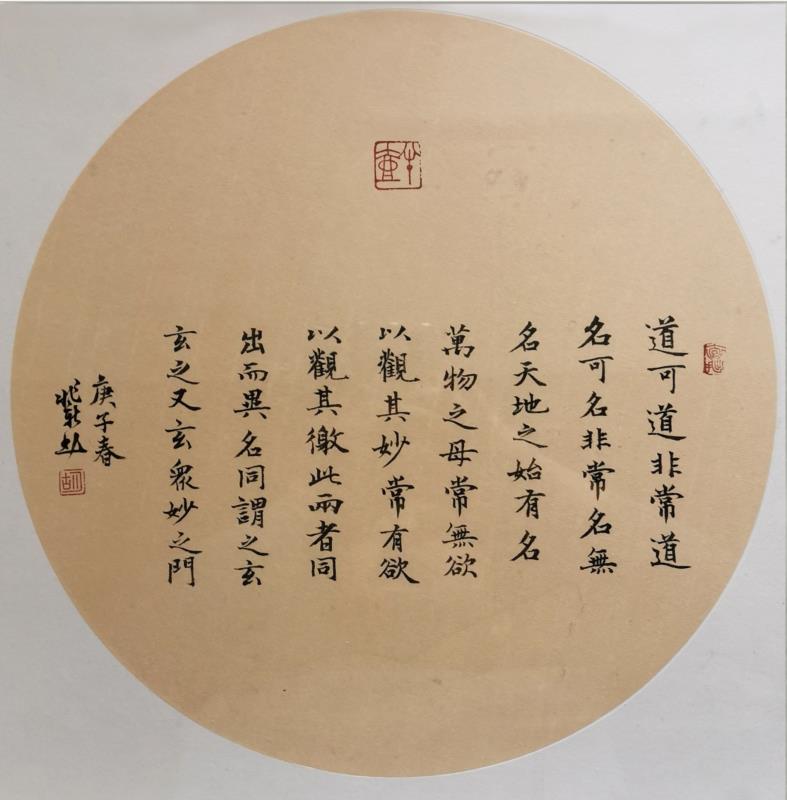 道可道非常道
名可名非常名無
名天地之始有名
萬物之母常無欲
以觀其妙常有欲
以觀其徼此兩者同
出而異名同謂之玄
玄之又玄衆妙之門
庚子春